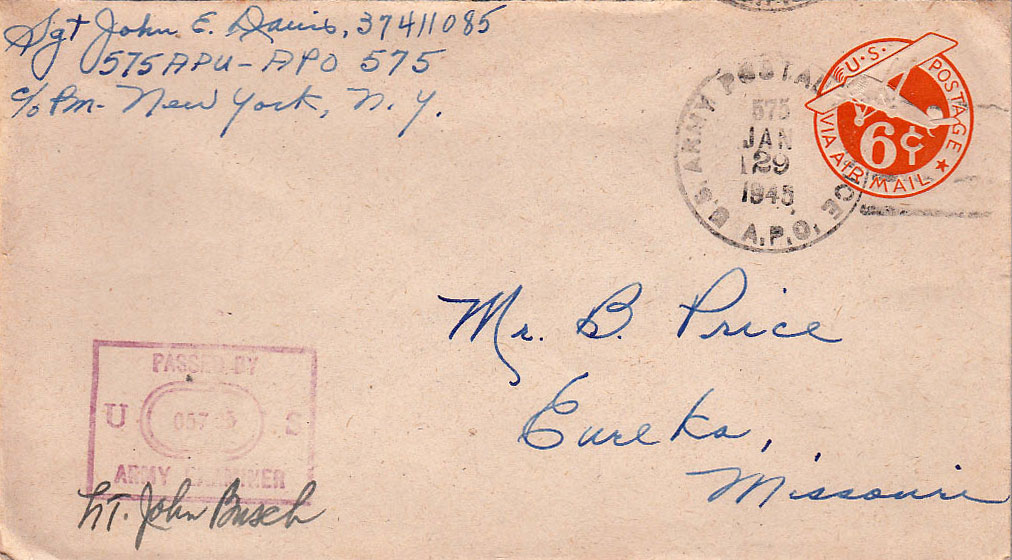 Sgt John E. Davis, 37411085
575 APU - APO 575
c/o Pm - New York, N.Y.
U.S. ARMY POSTAL
575
JAN
29
1945
A.P.O.
U.S. POSTAGE
6¢
VIA AIR MAIL
Mr. B. Price
Eureka,
Missouri
PASSED BY
U S
ARMY EXAMINER
LT. John Busch